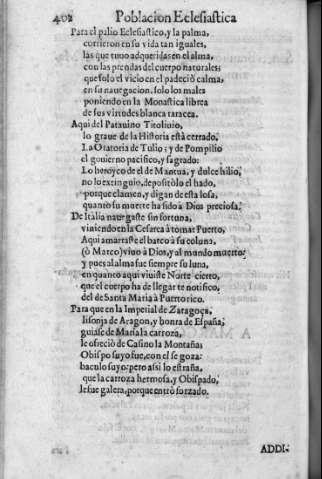 402 Poblacion Eclesiastica
Para el palio Eclesiastico, y la palma,
corrieron en su vida tan iguales,
las que tuuo adqueridas en el alma,
con las prendas del cuerpo naturales:
que solo el vicio en el padeciò calma,
en su nauegacion, solo los males
poniendo en la Monastica librea
de sus virtudes blanca taracea.
Aqui del Patauino Titoliuio,
lo graue de la Historia està cerrado,
La Oratoria de Tulio: y de Pompilio
el gouierno pacifico, y sagrado:
Lo heroyco de el de Mantua, y dulce hilio,
no lo extinguio, depositòlo el hado,
porque clamen, y digan de esta losa,
quanto su muerte ha sido à Dios preciosa.
De Italia nauegaste sin fortuna,
viniendo en la Cesarea à tomar Puerto,
Aqui amarraste el barco à su coluna,
(ò Marco) viuo à Dios, y al mundo muerto:
y pues al alma fue siempre su luna,
en quanto aqui viuiste Norte cierto,
que el cuerpo ha de llegar te notifico,
del de Santa Maria à Puerto rico.
Para que en la Imperial de Zaragoça,
lisonja de Aragon, y honra de España,
guiase de Maria la carroza,
le ofreciò de Casino la Montaña;
Obispo suyo fue, con el se goza:
baculo suyo: pero assi lo estraña,
que la carroza hermosa, y Obispado,
le fue galera, porque entrò forzado.
ADDI-